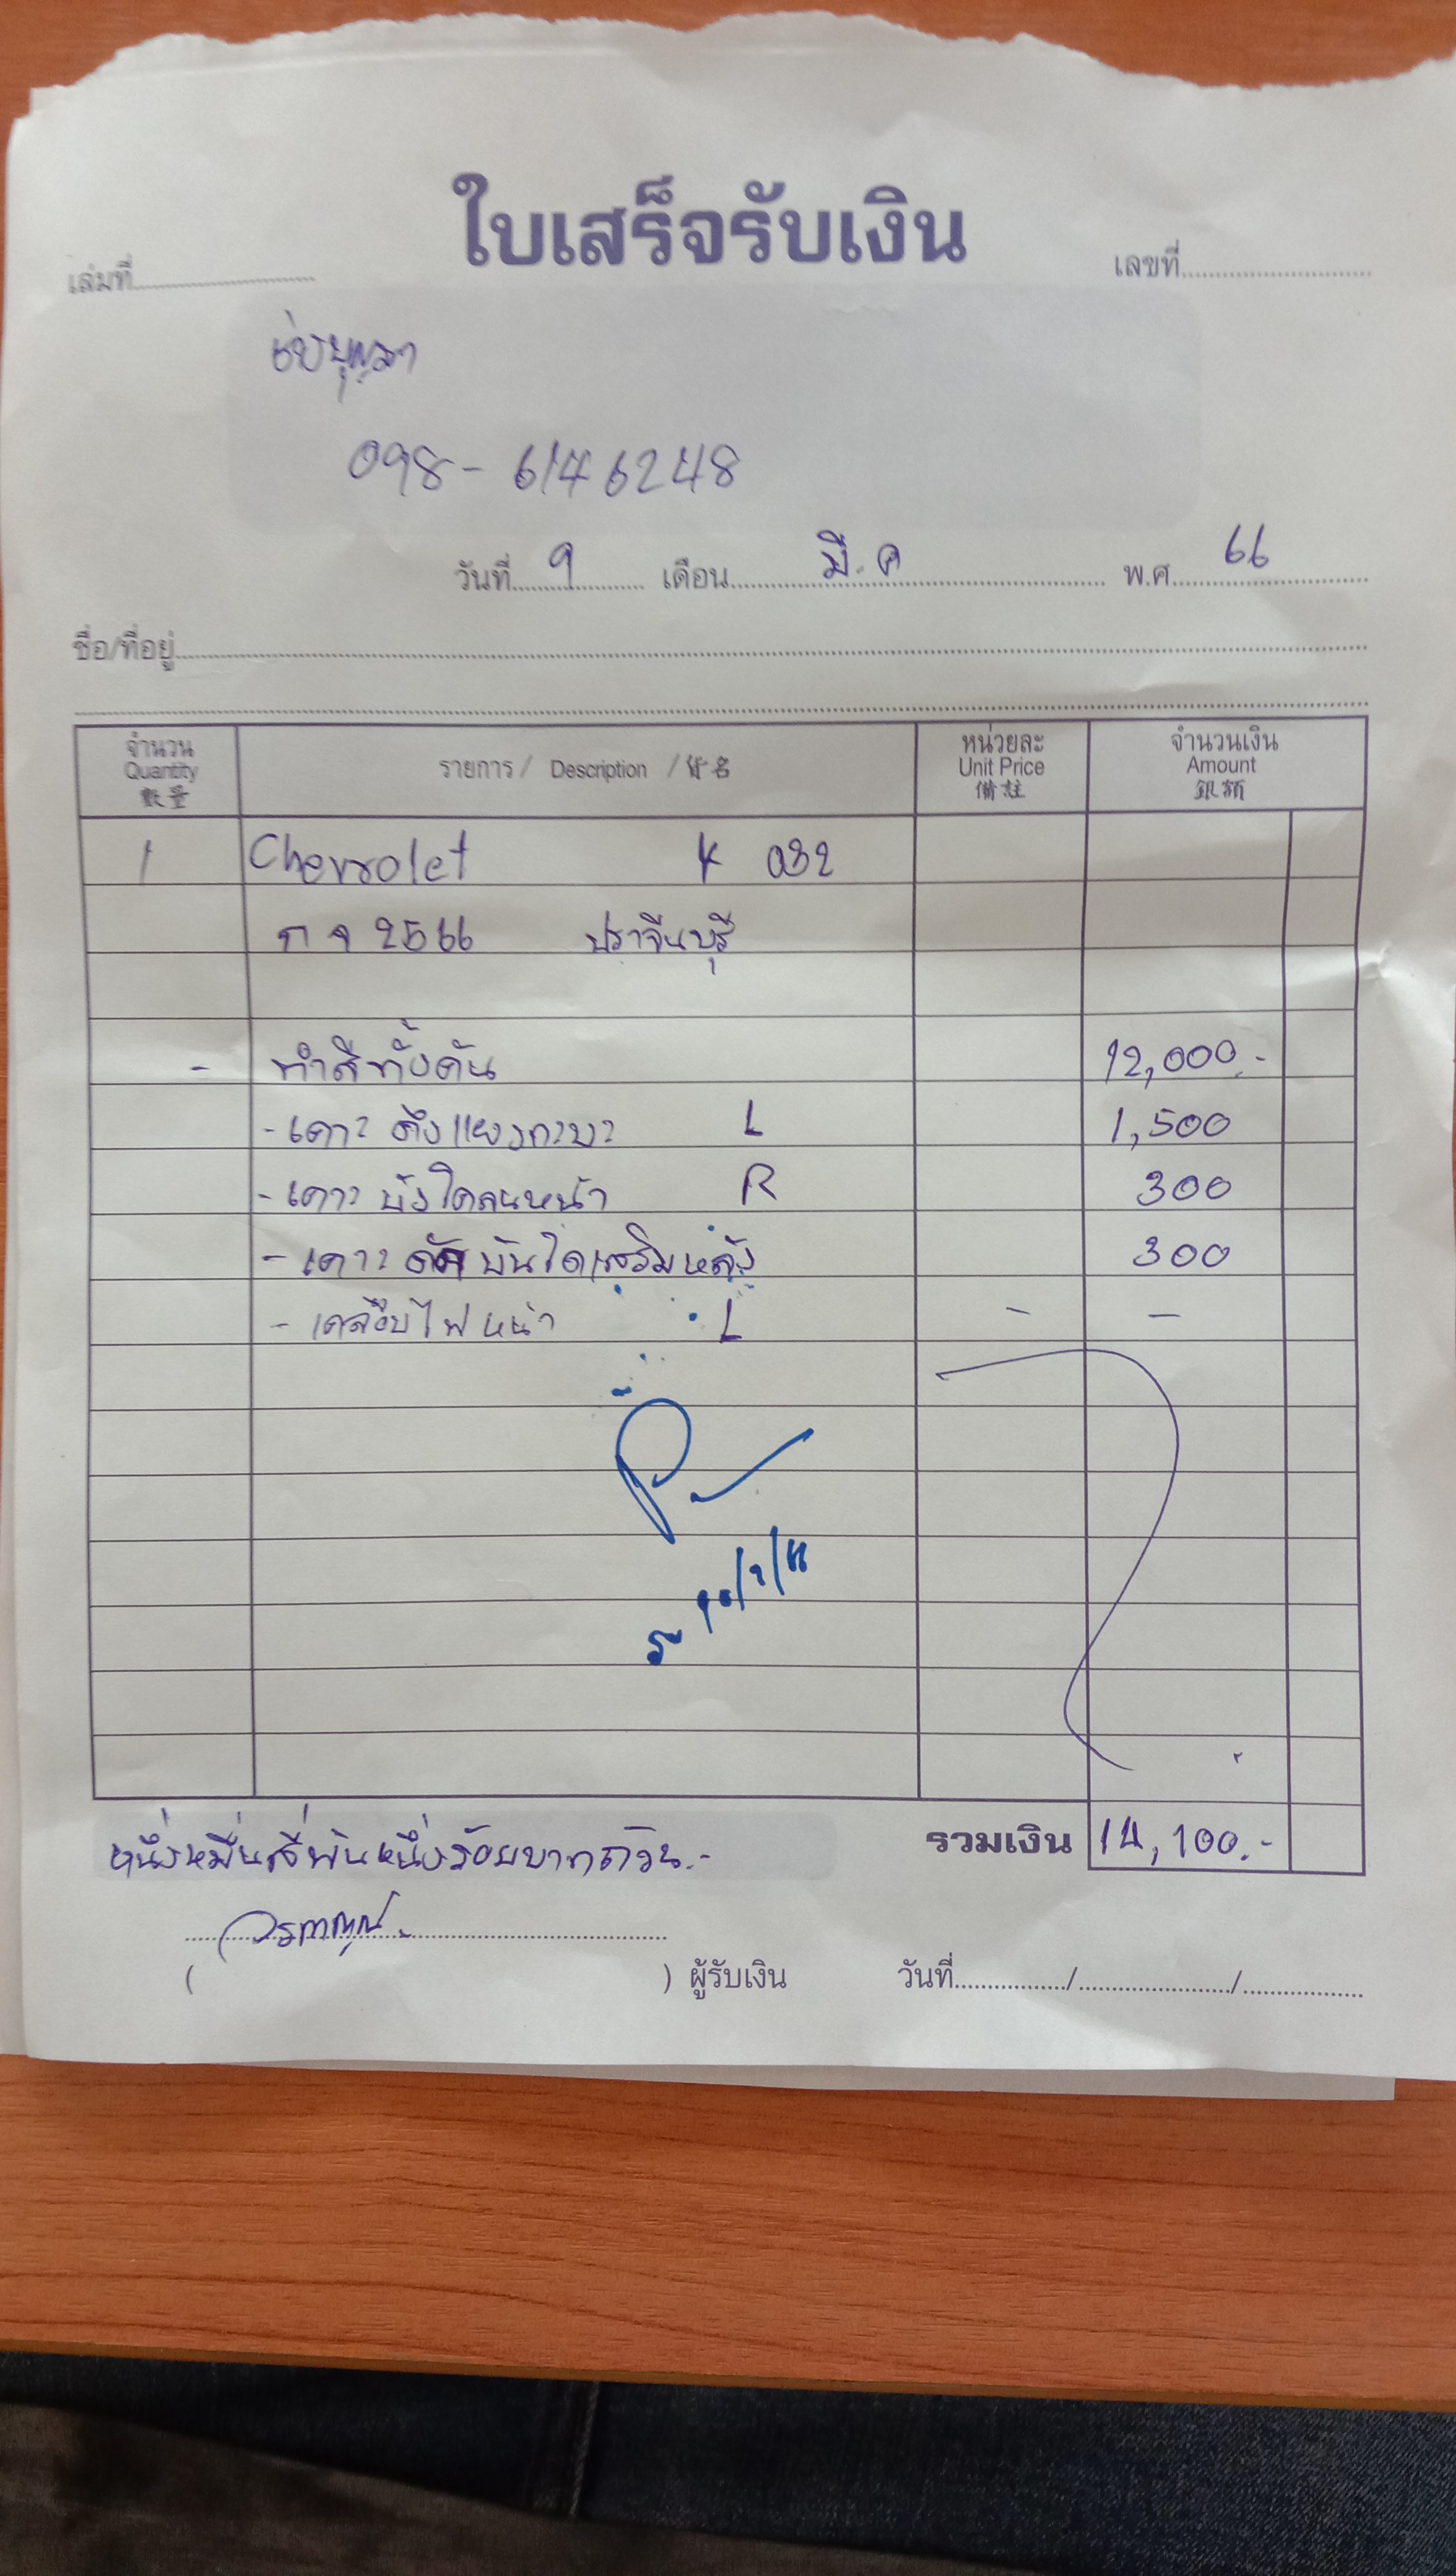 ใบเสร็จรับเงิน
เล่มที่ เลขที่
098-6146248
วันที่ 9 เดือน มี.ค พ.ศ. 66
ชื่อ/ที่อยู่
จำนวน รายการ / Description / 貨名 หน่วยละ จำนวนเงิน
Quantity Unit Price Amount
數量 備註 銀額
1 Chevrolet 032
2566 ปราจีนบุรี
- ทำสีทั้งคัน 12,000.-
- เคาะ ดึง แผงกะบะ L 1,500
- เคาะ หน้า R 300
- เคาะ ดัด บันไดเสริมหลัง 300
- เคลือบไฟหน้า L - -
หนึ่งหมื่นสี่พันหนึ่งร้อยบาทถ้วน.- รวมเงิน 14,100.-
( ) ผู้รับเงิน วันที่ / /